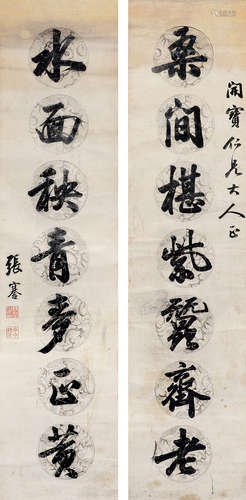 開寶仁兄大人正
桑間椹紫蠶齊老
水面秧青麥正黃
張謇